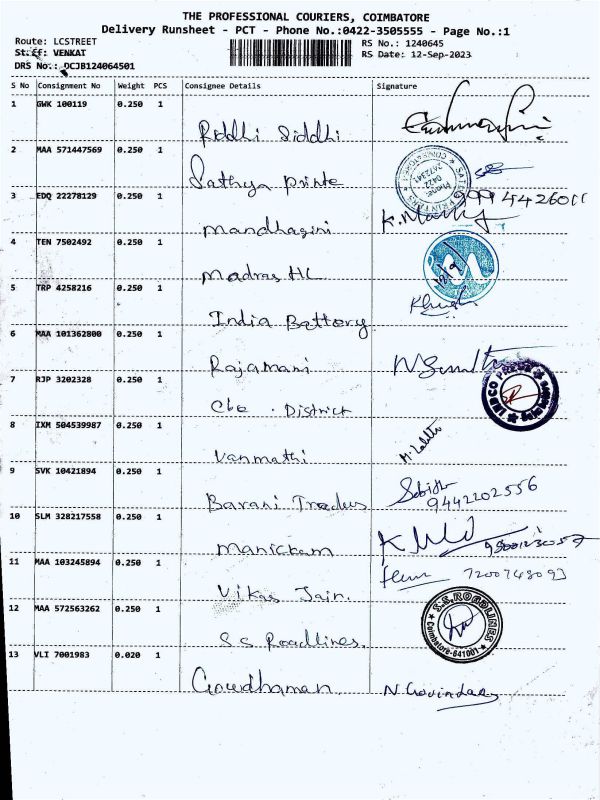 THE PROFESSIONAL COURIERS, COIMBATORE
Delivery Runsheet - PCT - Phone No.:0422-3505555 - Page No.:1
Route: LCSTREET
RS No.: 1240645
Staff: VENKAT
RS Date: 12-Sep-2023
DRS No.: DCJB124064501
S No Consignment No Weight PCS Consignee Details Signature
1 GWK 100119 0.250 1
Riddhi Siddhi
2 MAA 571447569 0.250 1
Sathya Printe
3 EDQ 22278129 0.250 1
9944426011
Mandhagini K.
4 TEN 7502492 0.250 1
Madras HL 12/9/
5 TRP 4258216 0.250 1
India Battery
6 MAA 101362800 0.250 1
Rajamani
7 RJP 3202328 0.250 1
Cbe . District
8 IXM 504539987 0.250 1
Vanmathi M. Lalith
9 SVK 10421894 0.250 1
Barani Traders 9442202556
10 SLM 328217558 0.250 1
Manickam K
11 MAA 103245894 0.250 1
7200748093
Vikas Jain.
12 MAA 572563262 0.250 1
S.S. ROADLINES
Coimbatore-641001
S S Roadlines
13 VLI 7001983 0.020 1
Gowdhaman N Govindaraj